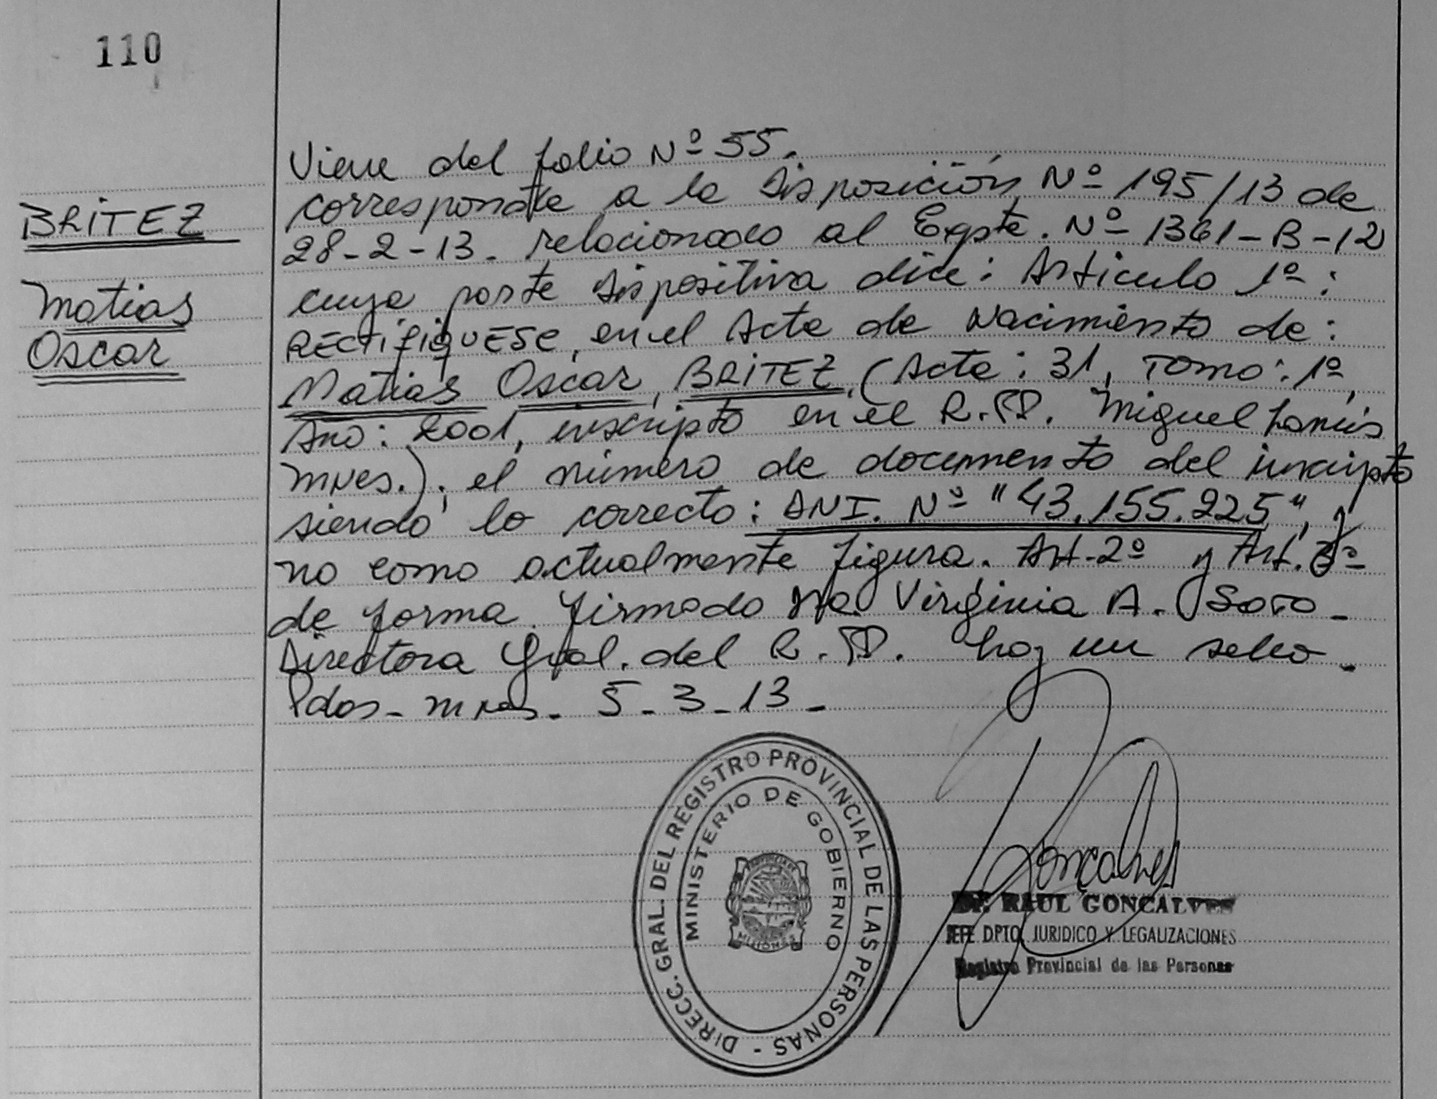 110
BRITEZ
Matias
Oscar
Viene del folio Nº 55.
corresponde a la disposición Nº 195/13 de
28-2-13. relacionado al Expte. Nº 1361-B-12
cuya parte dispositiva dice: Articulo 1º:
RECTIFIQUESE, en el Acta de Nacimiento de:
Matias Oscar, BRITEZ, (Acta: 31, Tomo: 1º,
Año: 2001, inscripto en el R.P.P. Miguel Lanús
Mnes.), el número de documento del inscripto
siendo lo correcto: DNI. Nº "43.155.225", y
no como actualmente figura. Art. 2º y Art. 3º
de forma. firmado Dra Virginia A. Soto -
Directora Gral. del R.P.P. hay un sello -
Pdas - Mnes. 5-3-13-
DIRECC. GRAL. DEL REGISTRO PROVINCIAL DE LAS PERSONAS -
MINISTERIO DE GOBIERNO
MISIONES
Goncalves
Dr. RAUL GONCALVES
JEFE DPTO. JURIDICO Y LEGALIZACIONES
Registro Provincial de las Personas